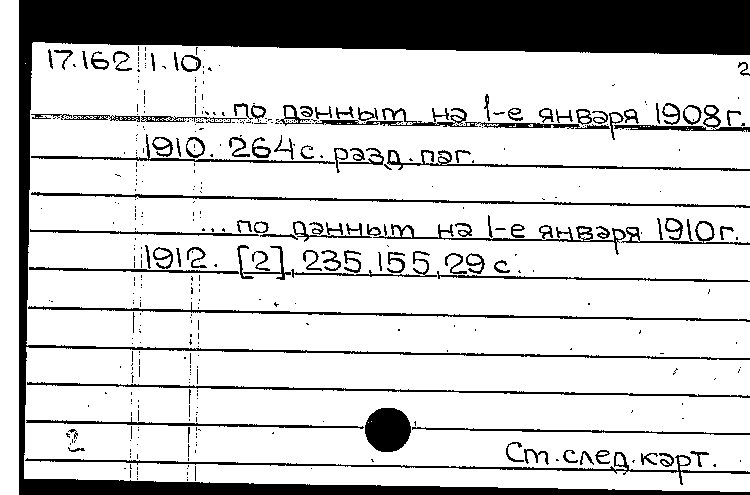 17.162 1.10. 2
...по данным на 1-е января 1908г.
1910. 264с. разд. паг.
...по данным на 1-е января 1910г.
1912. [2], 235, 155, 29 с.
2
См. след. карт.